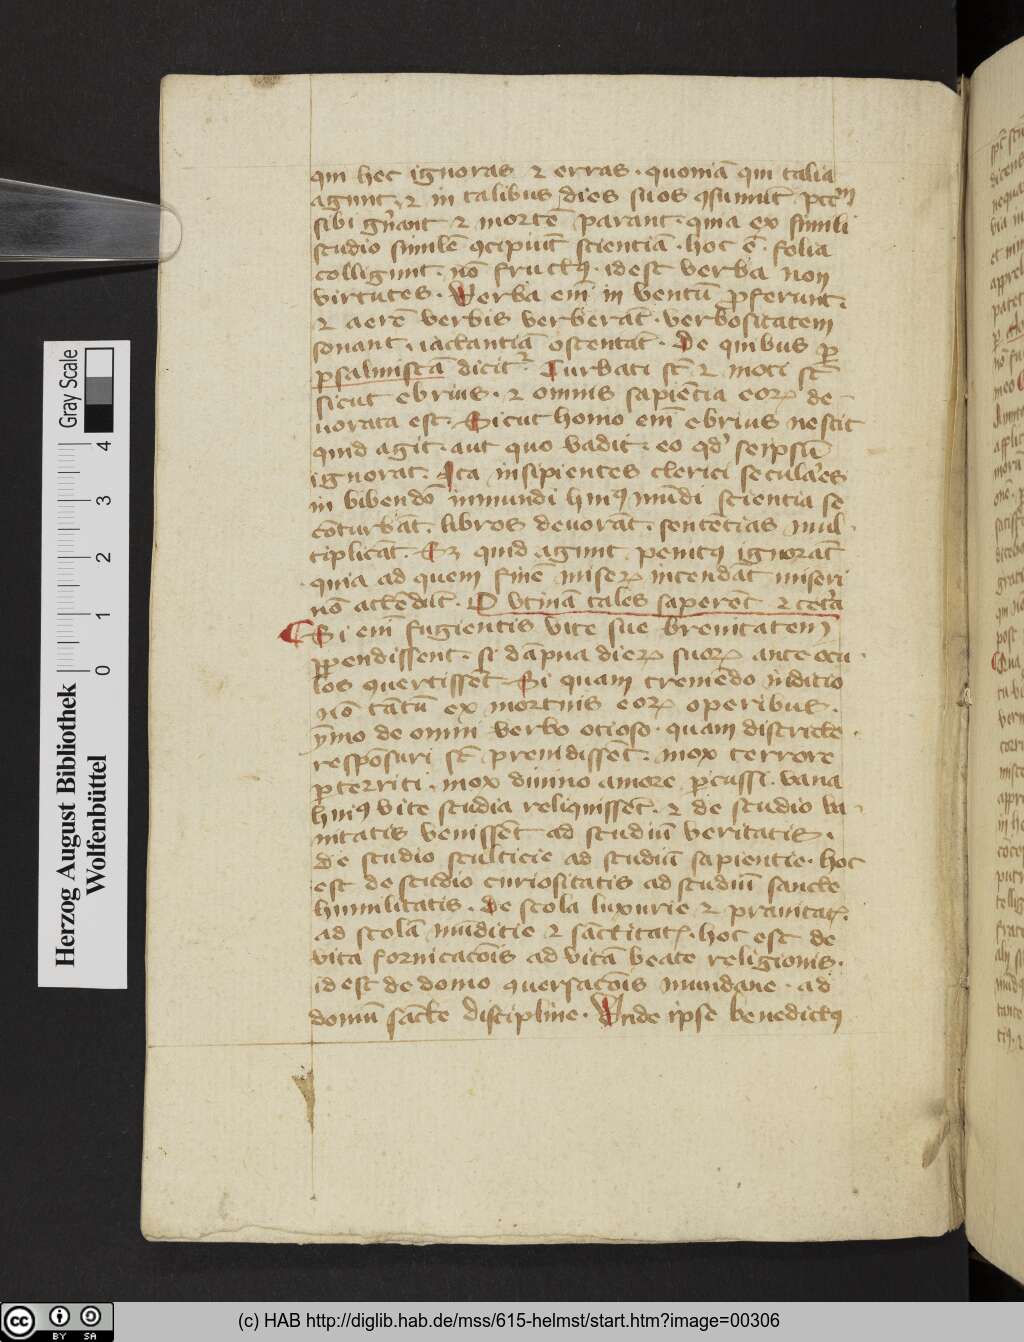 qui hec ignoras ⁊ erras · quoniā qui talia
agunt · ⁊ in talibus dies suos ꝯsumūt pctm̄
sibi gn̄ant ⁊ mortē parant · quia ex simili
studio similē ꝯcipiūt scientiā · hoc ē · folia
colligunt · nō fructꝰ · id est verba non
virtutes · Verba em̄ in ventū ꝓferunt ·
⁊ aerē verbis verberāt · verbositatem
sonant · iactantiā ostentāt · De quibus ꝑ
psalmistā dicit² Turbati st̄ ⁊ moti st̄
sicut ebrius · ⁊ omnis sapiētia eoꝝ de-
uorata est · Sicut homo em̄ ebrius nescit
quid agit · aut quo vadit · eo qd̕ seipsū
ignorat · Ita insipientes clerici secula̕es
in bibendō inmundi huiꝰ mūdi scientia se
cōturbāt · libros deuorāt · sentētias mul-
tiplicāt · Sꝫ quid agunt penitꝰ ignorāt
quia ad quem finē miseꝝ intendāt miseri
nō attēdūt · O vtinā tales saperēt ⁊ cet̕a
Si em̄ fugientis vite sue breuitatem
ꝑpendissent · si dāpna dieꝝ suoꝝ ante ocu-
los ꝯuertissēt · Si quam tremēdo iudicio
nō tātū ex mortuis eoꝝ operibus ·
ymo de omni verbo ocioso · quam districte ·
respōsuri st̄ preuidissēt · mox terrore
ꝑterriti · mox diuino amore ꝑcussi · vana
huiꝰ vite studia reliquissēt · ⁊ de studio va-
nitatis venissēt ad studiū veritatis ·
de studio stulticie ad studiū sapientie · hoc
est de studio curiositatis ad studiū sancte
humilitatis · De scola luxurie ⁊ prauitatꝭ ·
ad scolā mūditie ⁊ sāctitatꝭ · hoc est de
vita fornicacōis ad vitā beate religionis ·
id est de domo ꝯuersacōis mundane · ad
domū sācte discipline · Unde ipse benedictꝰ
Herzog August Bibliothek
Wolfenbüttel
Gray Scale
0 1 2 3 4
(c) HAB http://diglib.hab.de/mss/615-helmst/start.htm?image=00306
cc BY SA